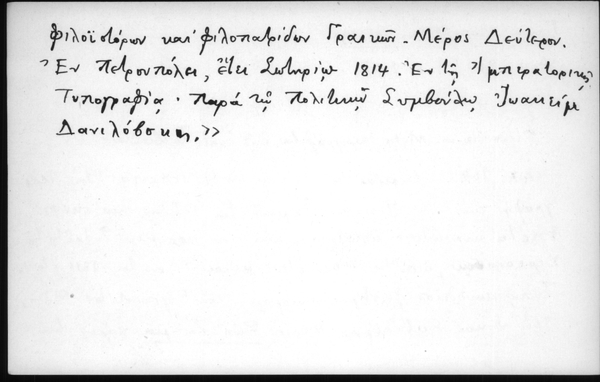 φιλοϊστόρων καὶ φιλοπατρίδων Γραικῶν. Μέρος Δεύτερον.
Ἐν Πετρουπόλει, ἔτει Σωτηρίῳ 1814. Ἐν τῇ Ἰμπερατορικῇ
Τυπογραφίᾳ. παρὰ τῷ Πολιτικῷ Συμβούλῳ Ἰωακεὶμ
Δανιλόβσκῃ.»